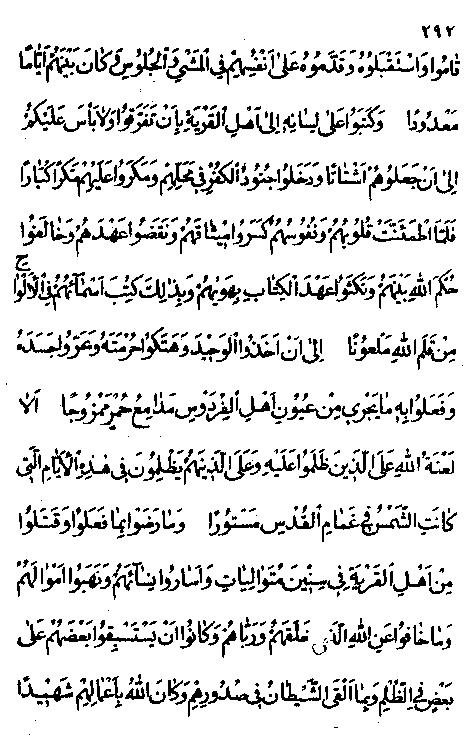 ٢٩٢
قاموا وَاسْتَقْبَلُوهُ وَقَدَّمُوهُ عَلىٰ اَنْفُسِهِمْ فِي الْمَشْيِ وَالْجُلُوسِ وَكانَ بَيْنَهُمْ اَيّامًا
مَعْدُودًا وَكَتَبُوا عَلىٰ لِسانِهِ اِلىٰ اَهْلِ الْقَرْيَةِ بِاَنْ تَفَرَّقُوا وَلا بَأْسَ عَلَيْكُمْ
اِلىٰ اَنْ جَعَلُوهُمْ اَشْتاتًا وَدَخَلُوا جُنُودُ الْكُفْرِ فِي مَحَلِّهِمْ وَمَكَرُوا عَلَيْهِمْ مَكْرًا كُبّارًا
فَلَمَّا اطْمَئَنَّتْ قُلُوبُهُمْ وَنُفُوسُهُمْ كَسَرُوا مِيثاقَهُمْ وَنَقَضُوا عَهْدَهُمْ وَخالَفُوا
حُكْمَ اللهِ بَيْنَهُمْ وَنَكَثُوا عَهْدَ الْكِتابِ بِهَوٰيهُمْ وَبِذٰلِكَ كُتِبَ اَسْمائُهُمْ فِي الْاَلْواحِ
مِنْ قَلَمِ اللهِ مَلْعُونًا اِلىٰ اَنْ اَخَذُوا الْوَحِيدَ وَهَتَكُوا حُرْمَتَهُ وَعَرَّوْا جَسَدَهُ
وَفَعَلُوا بِهِ ما يَجْرِي مِنْ عُيُونِ اَهْلِ الْفِرْدَوْسِ مَدامِعُ حُمْرٍ مَمْزُوجًا اَلا
لَعْنَةُ اللهِ عَلَى الَّذِينَ ظَلَمُوا عَلَيْهِ وَعَلَى الَّذِينَهُمْ يَظْلِمُونَ فِي هٰذِهِ الْاَيّامِ الَّتِي
كانَتِ الشَّمْسُ فِي غَمامِ الْقُدْسِ مَسْتُورًا وَما رَضُوا بِما فَعَلُوا وَقَتَلُوا
مِنْ اَهْلِ الْقَرْيَةِ فِي سِنِينَ مُتَوالِياتٍ وَاَسارُوا نِسائَهُمْ وَنَهَبُوا اَمْوالَهُمْ
وَما خافُوا عَنِ اللهِ الَّذِي خَلَقَهُمْ وَرَبّاهُمْ وَكانُوا اَنْ يَسْتَسْبِقُوا بَعْضُهُمْ عَلىٰ
بَعْضٍ فِي الظُّلْمِ وَبِما اَلْقَى الشَّيْطانُ فِي صُدُورِهِمْ وَكانَ اللهُ بِاَعْمالِهِمْ شَهِيدًا